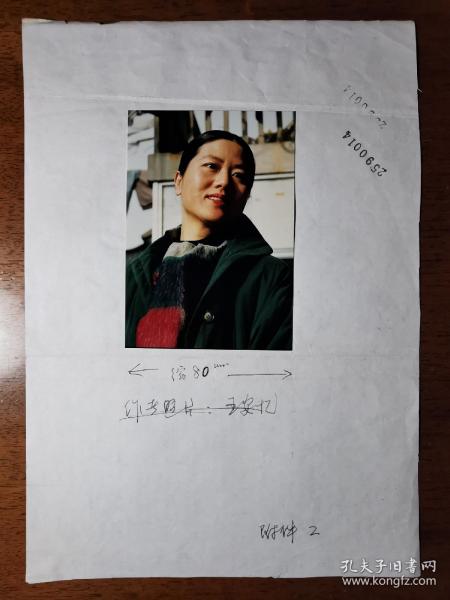 2590014
2590014
缩80mm
作者照片：王安忆
附件2
孔夫子旧书网
www.kongfz.com